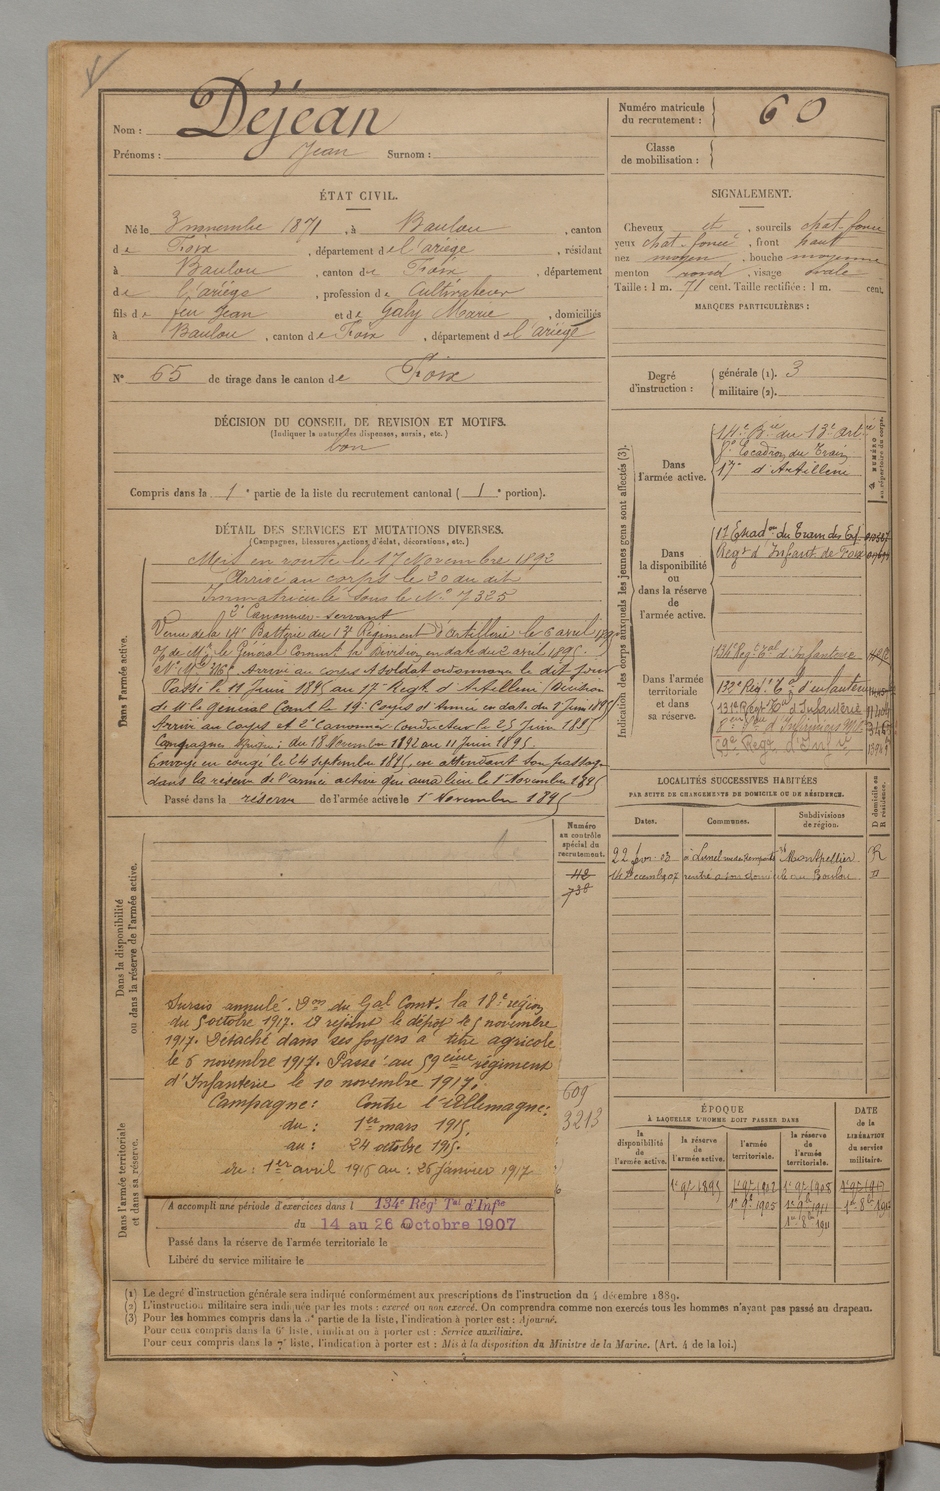 Nom : Déjean
Prénoms : Jean Surnom :
Numéro matricule du recrutement : 60
Classe de mobilisation :
ÉTAT CIVIL.
Né le 3 novembre 1871, à Baulou, canton
de Foix, département de l'ariège, résidant
à Baulou, canton de Foix, département
de l'ariège, profession de Cultivateur
fils de feu Jean et de Galy Marie, domiciliés
à Baulou, canton de Foix, département de l'ariège
N° 65 de tirage dans le canton de Foix
DÉCISION DU CONSEIL DE REVISION ET MOTIFS.
(Indiquer la nature des dispenses, sursis, etc.)
bon
Compris dans la 1e partie de la liste du recrutement cantonal ( 1e portion).
SIGNALEMENT.
Cheveux et, sourcils chat. foncé
yeux chat. foncé, front haut
nez moyen, bouche moyenne
menton rond, visage ovale
Taille : 1 m. 71 cent. Taille rectifiée : 1 m. cent.
MARQUES PARTICULIÈRES :
Degré d'instruction :
générale (1). 3
militaire (2).
DÉTAIL DES SERVICES ET MUTATIONS DIVERSES.
(Campagnes, blessures, actions d'éclat, décorations, etc.)
Dans l'armée active.
Mis en route le 17 Novembre 1892
Arrivé au corps le 20 du dit
Immatriculé sous le N° 7325
2e Canonnier-servant
Venu de la 14e Batterie du 13e Régiment d'Artillerie le 6 avril 1895
de Mr le Général Commt la Division en date du 2 avril 1895.
Arrivé au corps et soldat ordonnance le dit jour
Passé le 11 Juin 1895 au 17e Regt d'Artillerie (Décision
de Mr le Général Comt le 19e Corps d'Armée en date du 8 Juin 1895)
Arrivé au Corps et 2e Canonnier Conducteur le 25 Juin 1895
Campagnes : du 18 Novembre 1892 au 11 juin 1895.
Envoyé en congé le 24 septembre 1895, en attendant son passage
dans la réserve de l'armée active qui aura lieu le 1er Novembre 1895
Passé dans la réserve de l'armée active le 1er Novembre 1895
Indication des corps auxquels les jeunes gens sont affectés (3).
NUMÉRO au répertoire du corps.
Dans l'armée active.
14e Bie du 13e Art
Escadron du Train
17e d'Artillerie
Dans la disponibilité ou dans la réserve de l'armée active.
17 Escadon du Train des Eq.
Regt d'Infant. de Foix
Dans l'armée territoriale et dans sa réserve.
134e Regt Tal d'Infanterie
132e Regt Tal d'infanterie
131e Regt Tal d'Infanterie
59e Regt d'Infie
LOCALITÉS SUCCESSIVES HABITÉES
PAR SUITE DE CHANGEMENTS DE DOMICILE OU DE RÉSIDENCE.
Dates. Communes. Subdivisions de région. D domicile ou R résidence.
22 fév. 03 à Lunel Montpellier R
14 Décembre 07 rentré à son domicile au Baulou D
Dans la disponibilité ou dans la réserve de l'armée active.
Numéro au contrôle spécial du recrutement.
42
738
609
3213
Sursis annulé. Don du Gal Comt. la 18e région
du 5 octobre 1917. Il rejoint le dépôt le 5 novembre
1917. Détaché dans ses foyers à titre agricole
le 6 novembre 1917. Passé au 59eme régiment
d'Infanterie le 10 novembre 1917.
Campagne : Contre l'Allemagne :
du : 1er mars 1915,
au : 24 octobre 1915.
du : 1er avril 1916 au : 26 janvier 1917
Dans l'armée territoriale et dans sa réserve.
A accompli une période d'exercices dans l 134e Régt Tal d'Infie
du 14 au 26 Octobre 1907
Passé dans la réserve de l'armée territoriale le
Libéré du service militaire le
ÉPOQUE
À LAQUELLE L'HOMME DOIT PASSER DANS
la disponibilité de l'armée active. la réserve de l'armée active. l'armée territoriale. la réserve de l'armée territoriale. DATE de la LIBÉRATION du service militaire.
1er 9bre 1895 1er 9bre 1902 1er 9bre 1908 1er 9bre 1917
1er 9bre 1905 1er 9bre 1911
1er 8bre 1911
(1) Le degré d'instruction générale sera indiqué conformément aux prescriptions de l'instruction du 4 décembre 1889.
(2) L'instruction militaire sera indiquée par les mots : exercé ou non exercé. On comprendra comme non exercés tous les hommes n'ayant pas passé au drapeau.
(3) Pour les hommes compris dans la 5e partie de la liste, l'indication à porter est : Ajourné.
Pour ceux compris dans la 6e liste, l'indication à porter est : Service auxiliaire.
Pour ceux compris dans la 7e liste, l'indication à porter est : Mis à la disposition du Ministre de la Marine. (Art. 4 de la loi.)